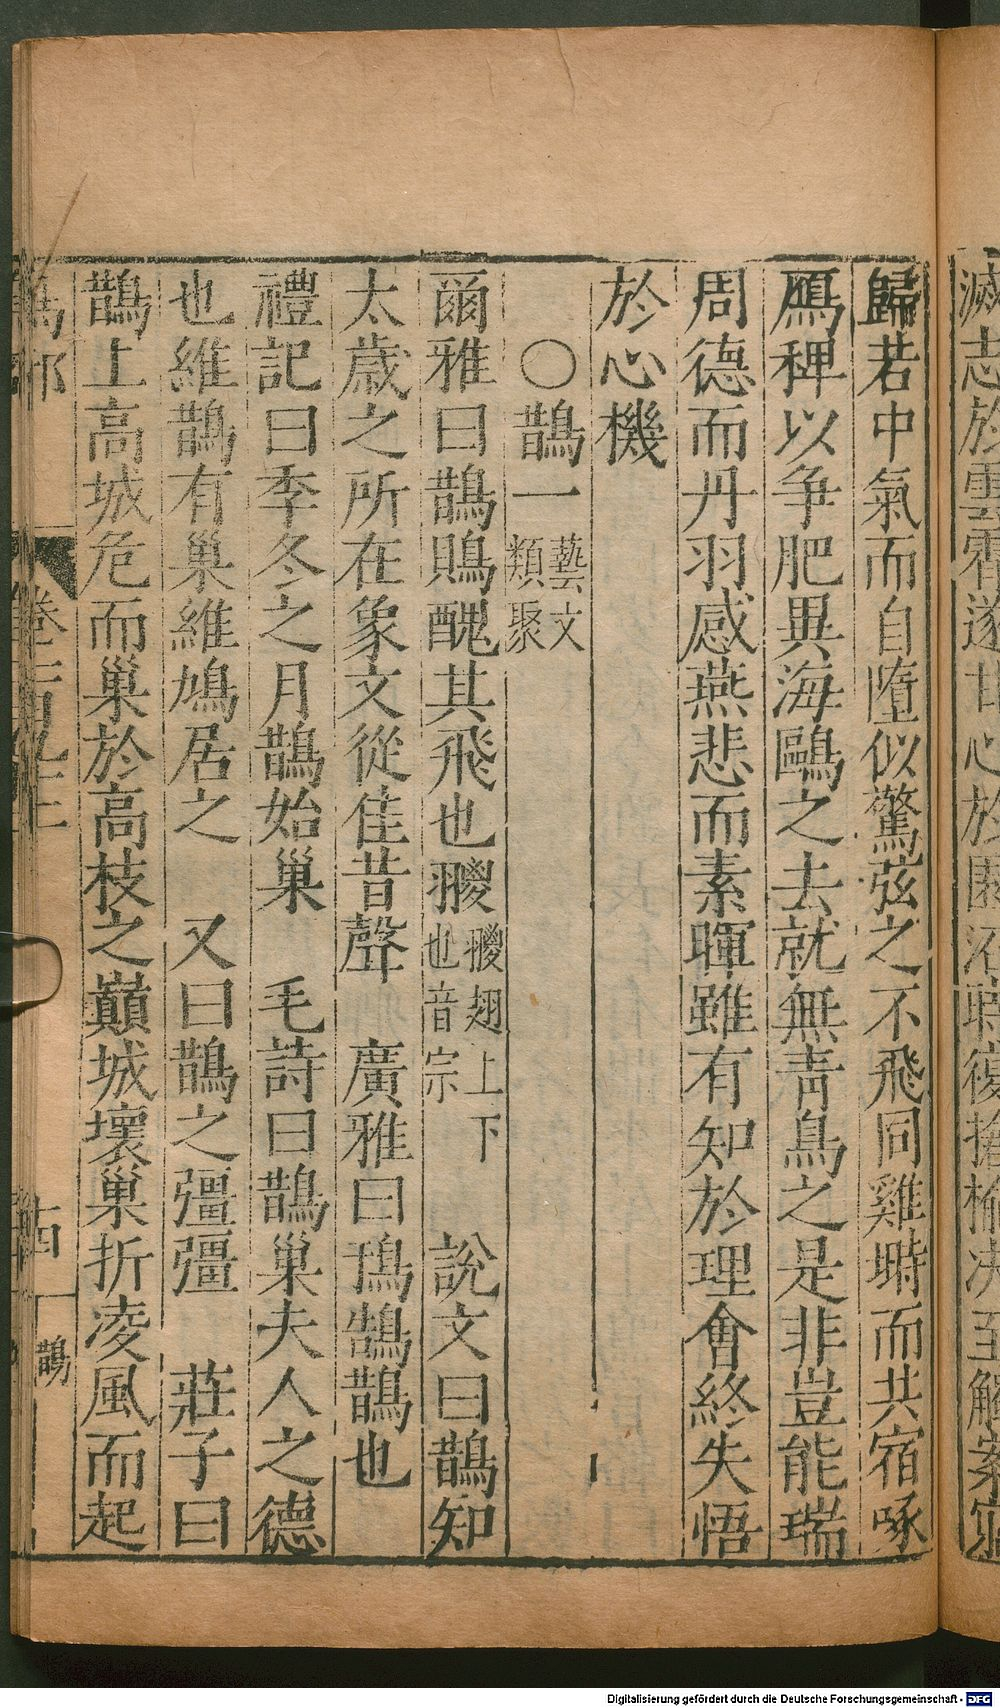 滅志於雲霄遂甘心於園沼時復搶楡决至觸案
歸若中氣而自墮似驚弦之不飛同雞塒而共宿啄
鴈稗以争肥異海鷗之去就無靑鳥之是非豈能瑞
周德而丹羽感燕悲而素暉雖有知於理會終失悟
於心機
○鵲一 藝文類聚
爾雅曰鵲鵙醜其飛也翪 翪翅上下也音宗 說文曰鵲知
太歲之所在象文從隹昔聲 廣雅曰鳱鵠鵲也
禮記曰季冬之月鵲始巢 毛詩曰鵲巢夫人之德
也維鵲有巢維鳩居之 又曰鵲之彊彊 莊子曰
鵲上高城危而巢於高枝之巔城壞巢折凌風而起
鳥部 卷 十四 鵲
Digitalisierung gefördert durch die Deutsche Forschungsgemeinschaft - DFG